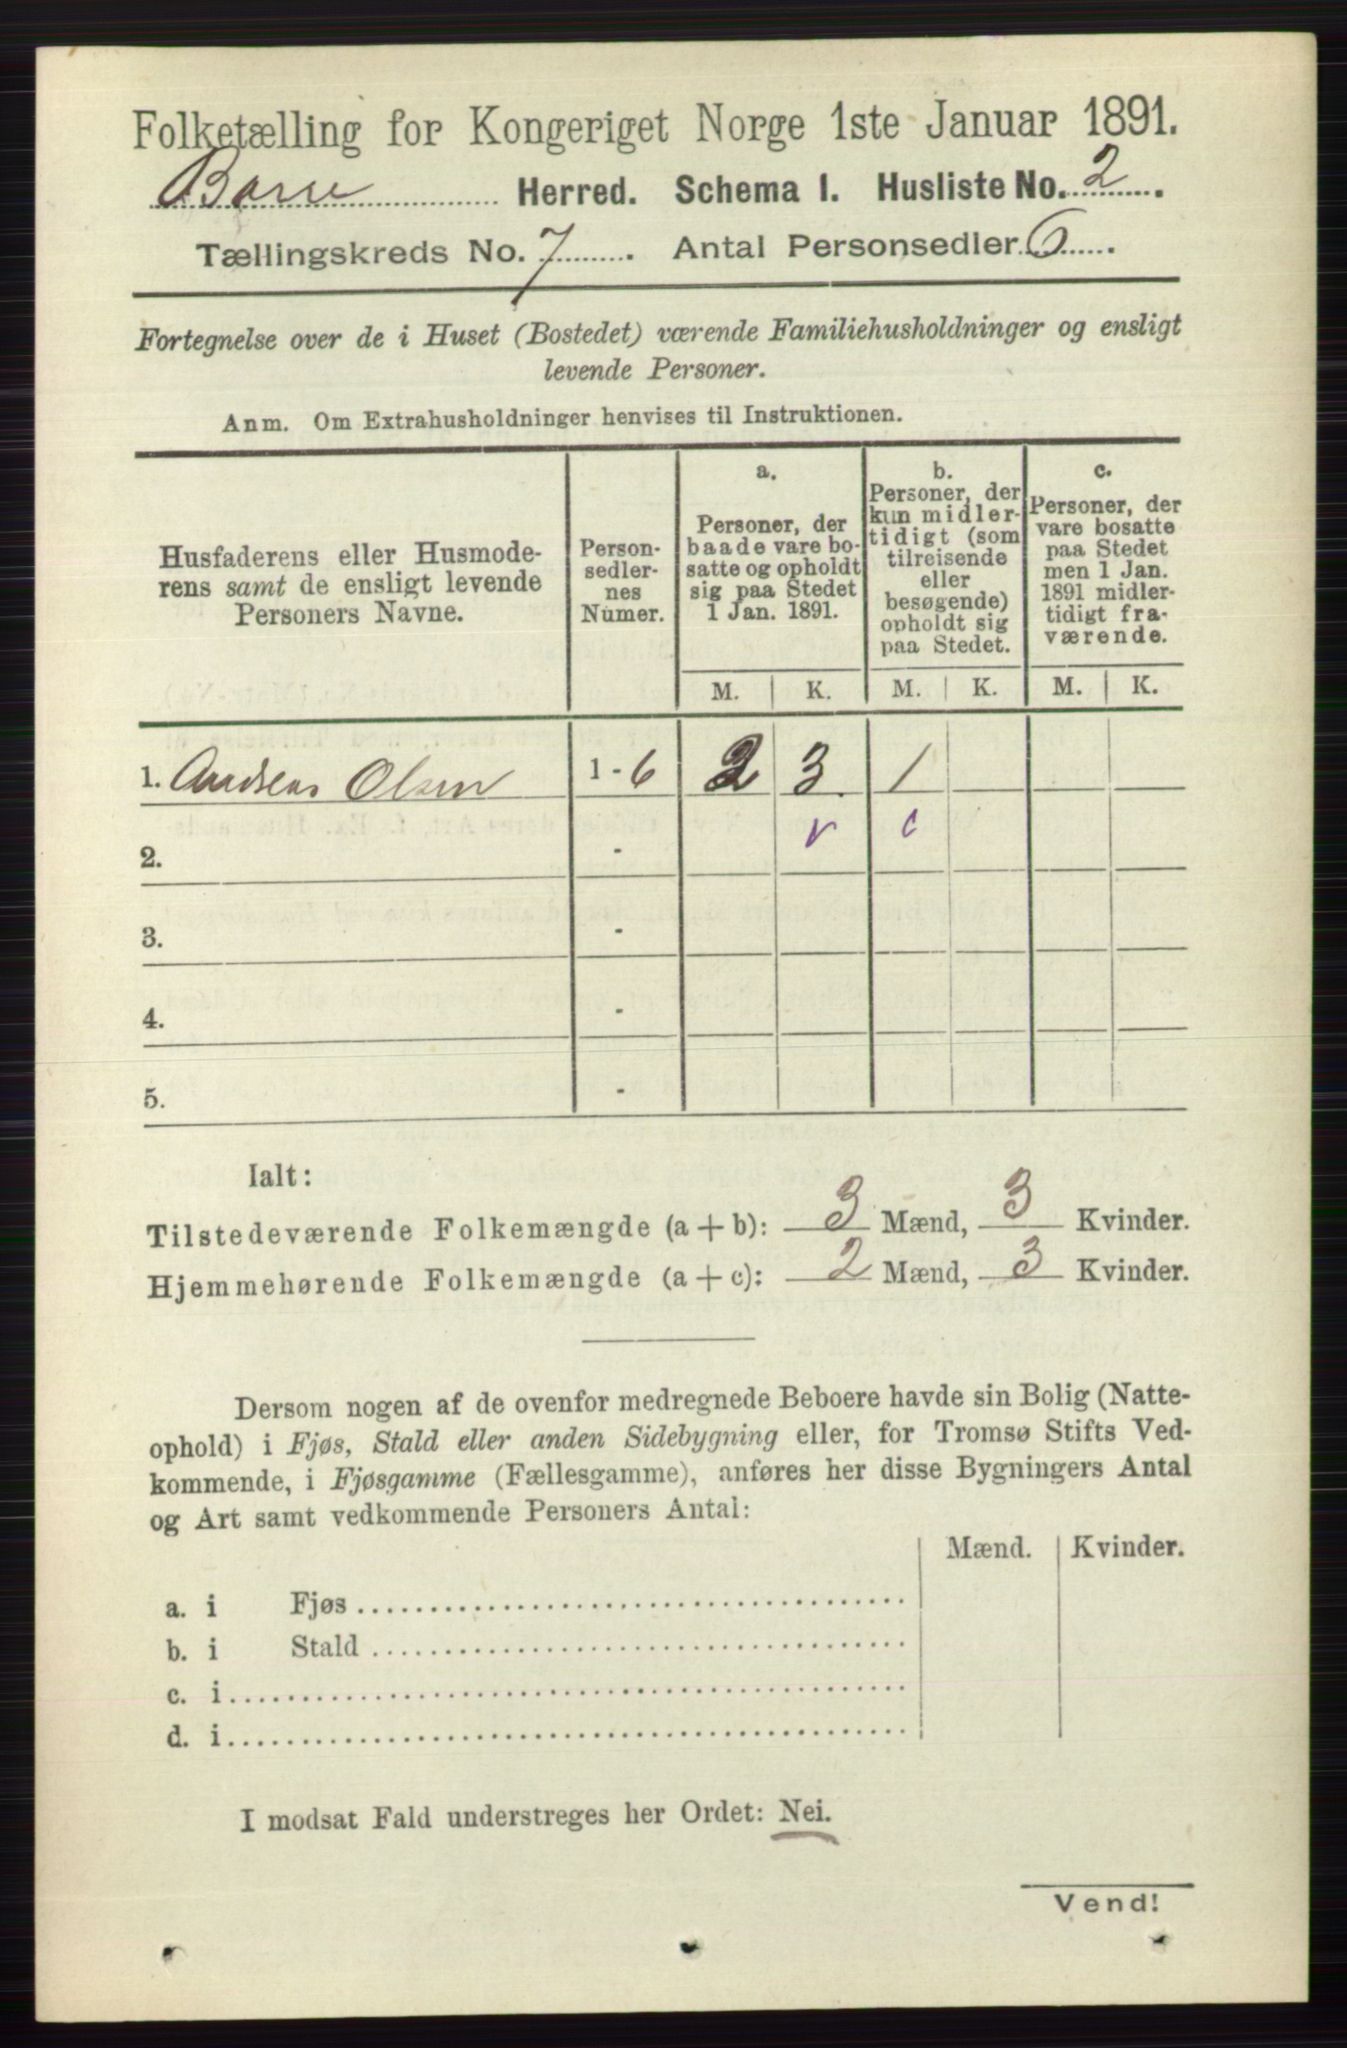 Folketælling for Kongeriget Norge 1ste Januar 1891.
Borre Herred. Schema 1. Husliste No. 2.
Tællingskreds No. 7. Antal Personsedler 6.
Fortegnelse over de i Huset (Bostedet) værende Familiehusholdninger og ensligt
levende Personer.
Anm. Om Extrahusholdninger henvises til Instruktionen.
Husfaderens eller Husmode-
rens samt de ensligt levende
Personers Navne.
Person-
sedler-
nes
Numer.
a.
Personer, der
baade vare bo-
satte og opholdt
sig paa Stedet
1 Jan. 1891.
b.
Personer, der
kun midler-
tidigt (som
tilreisende
eller
besøgende)
opholdt sig
paa Stedet.
c.
Personer, der
vare bosatte
paa Stedet
men 1 Jan.
1891 midler-
tidigt fra-
værende.
M. K. M. K. M. K.
1. Andreas Olsen 1-6 2 3 1
2. -
3. -
4. -
5. -
Ialt:
Tilstedeværende Folkemængde (a + b): 3 Mænd, 3 Kvinder.
Hjemmehørende Folkemængde (a + c): 2 Mænd, 3 Kvinder.
Dersom nogen af de ovenfor medregnede Beboere havde sin Bolig (Natte-
ophold) i Fjøs, Stald eller anden Sidebygning eller, for Tromsø Stifts Ved-
kommende, i Fjøsgamme (Fællesgamme), anføres her disse Bygningers Antal
og Art samt vedkommende Personers Antal:
Mænd. Kvinder.
a. i Fjøs
b. i Stald
c. i
d. i
I modsat Fald understreges her Ordet: Nei.
Vend!